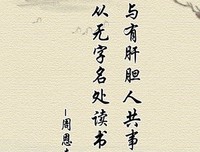 与有肝胆人共事
从无字名处读书
-周恩